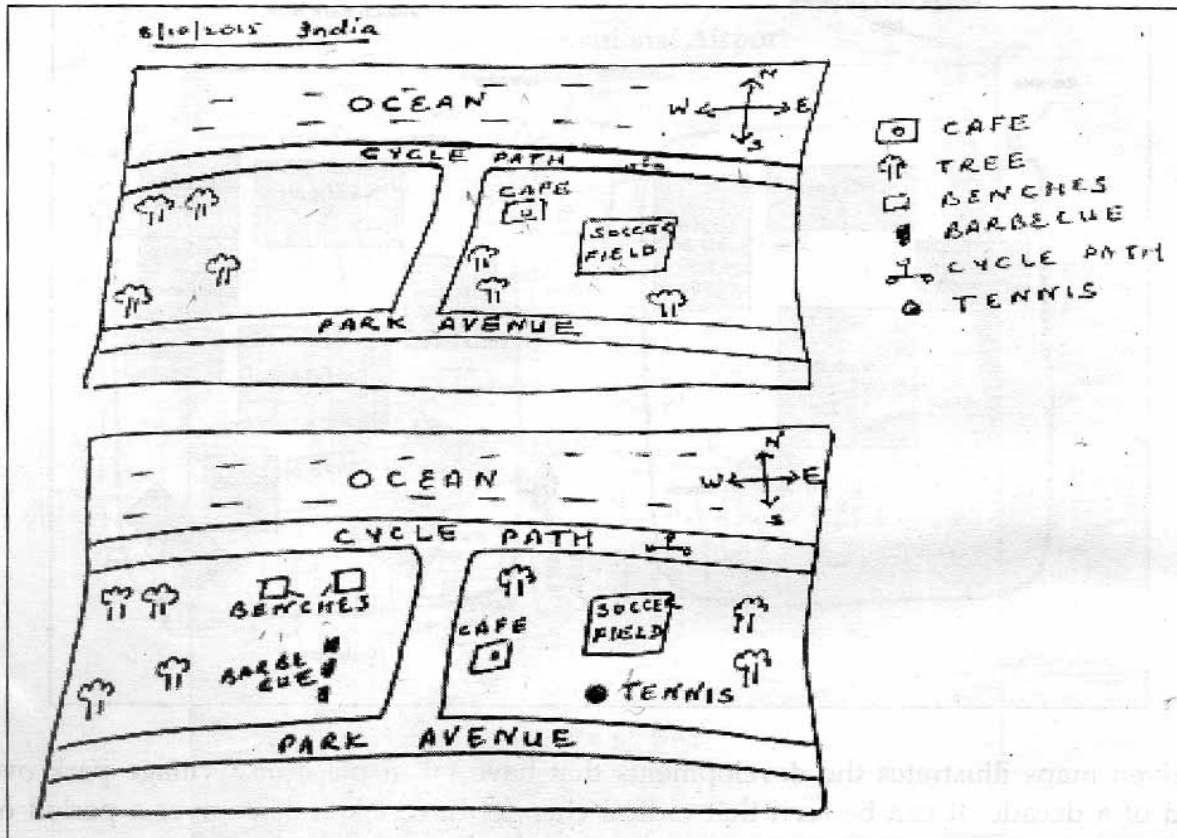 8/10/2015 India
OCEAN
N
W E
S
CYCLE PATH
CAFE
SOCCER
FIELD
PARK AVENUE
CAFE
TREE
BENCHES
BARBECUE
CYCLE PATH
TENNIS
OCEAN
N
W E
S
CYCLE PATH
BENCHES
SOCCER
FIELD
CAFE
BARBE
CUE
TENNIS
PARK AVENUE
given maps illustrates the developments that have
of a decade. It can be